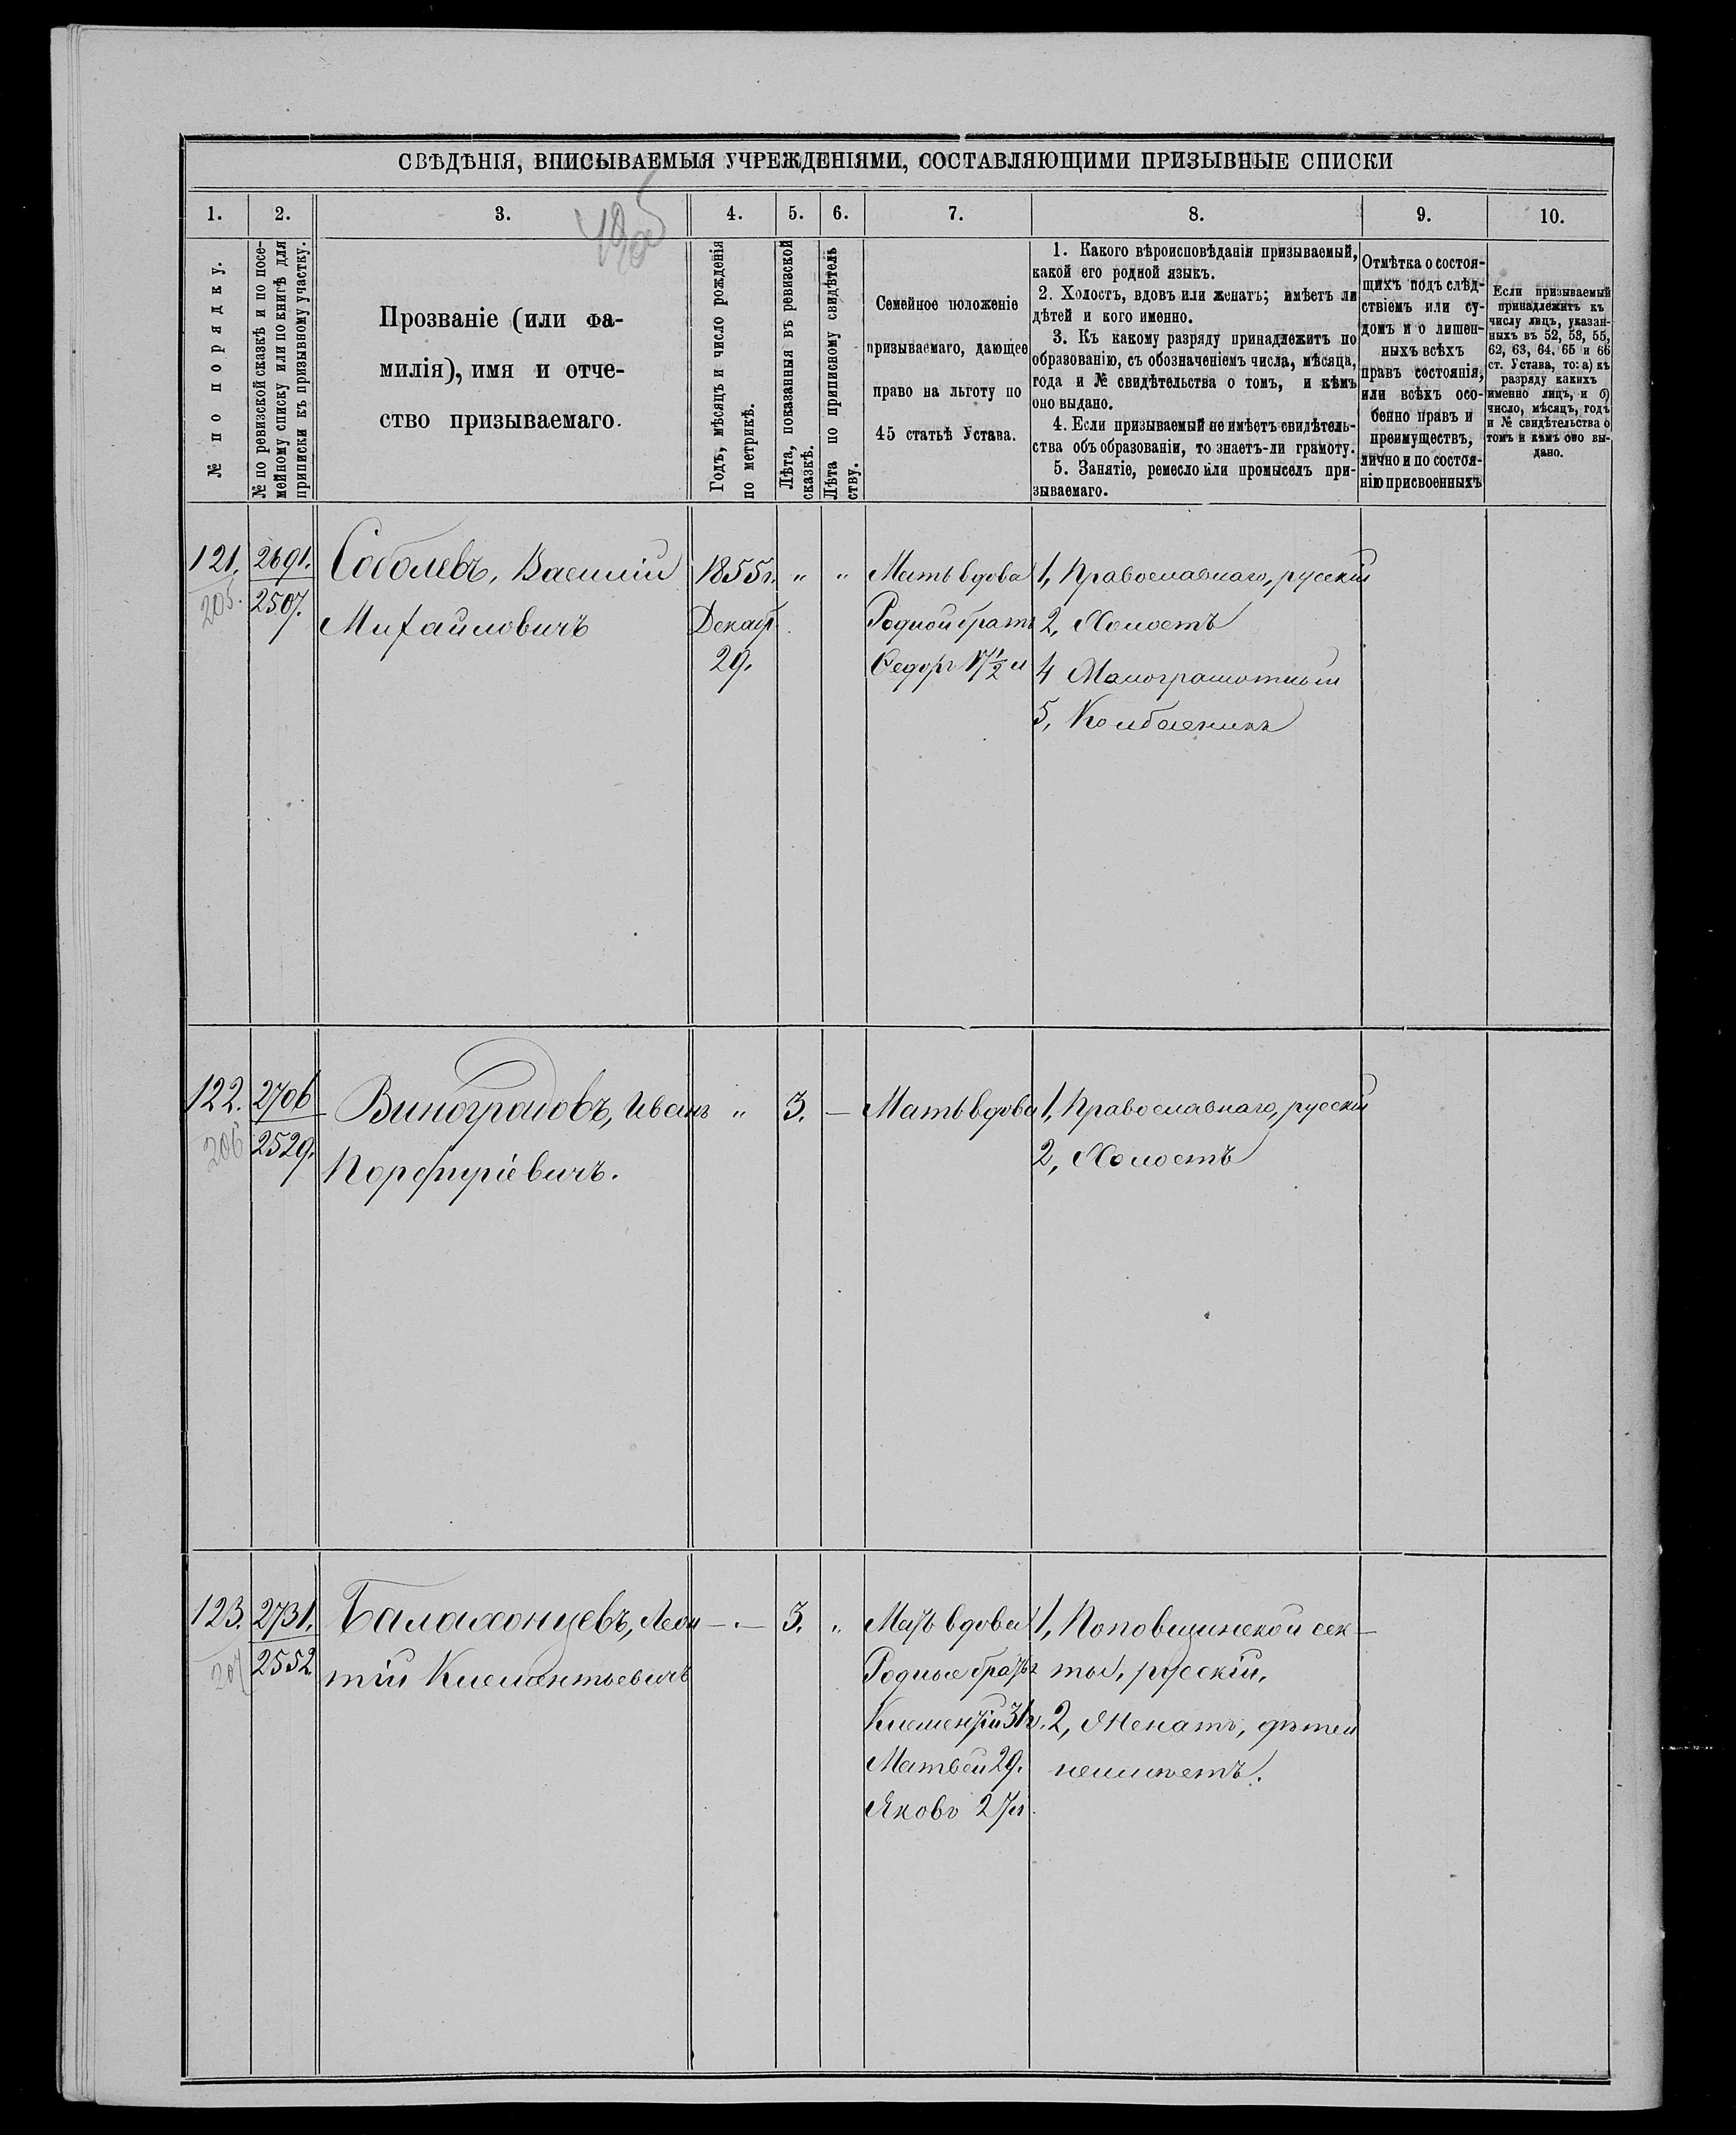 СВѢДѢНІЯ, ВПИСЫВАЕМЫЯ УЧРЕЖДЕНІЯМИ, СОСТАВЛЯЮЩИМИ ПРИЗЫВНЫЕ СПИСКИ
1. 2. 3. 4. 5. 6. 7. 8. 9. 10.
№ по порядку.
№ по ревизской сказкѣ и по посе-
мейному списку или по книгѣ для
приписки къ призывному участку.
Прозваніе (или фа-
милія), имя и отче-
ство призываемаго.
Годъ, мѣсяцъ и число рожденія
по метрикѣ.
Лѣта, показанныя въ ревизской
сказкѣ.
Лѣта по приписному свидѣтель
ству.
Семейное положеніе
призываемаго, дающее
право на льготу по
45 статьѣ Устава.
1. Какого вѣроисповѣданія призываемый,
какой его родной языкъ.
2. Холостъ, вдовъ или женатъ; имѣетъ ли
дѣтей и кого именно.
3. Къ какому разряду принадлежитъ по
образованію, съ обозначеніемъ числа, мѣсяца,
года и № свидѣтельства о томъ, и кѣмъ
оно выдано.
4. Если призываемый не имѣетъ свидѣтель-
ства объ образованіи, то знаетъ-ли грамоту.
5. Занятіе, ремесло или промыселъ при-
зываемаго.
Отмѣтка о состоя-
щихъ подъ слѣд-
ствіемъ или су-
домъ и о лишен-
ныхъ всѣхъ
правъ состоянія,
или всѣхъ осо-
бенно правъ и
преимуществъ,
лично и по состоя-
нію присвоенныхъ
Если призываемый
принадлежитъ къ
числу лицъ, указан-
ныхъ въ 52, 53, 55,
62, 63, 64. 65 и 66
ст. Устава, то: а) къ
разряду какихъ
именно лицъ, и б)
число, мѣсяцъ, годъ
и № свидѣтельства о
томъ и кѣмъ оно вы-
дано.
121.
205.
2691.
2507.
Соболевъ, Василій
Михайловичъ
1855 г.
Декаб.
29.
"
"
Мать вдова
Родной братъ
Федоръ 17½ л
1, Православнаго, русскій
2, Холостъ
4 Малограмотный
5, Колбасникъ
122.
206
2706
2529.
Виноградовъ, Иванъ
Порфиріевичъ.
"
3.
—
Мать вдова
1, Православнаго, русскій
2, Холостъ
123.
207
2731.
2552
Балахонцевъ, Леон
тій Клементьевичъ
— . —
3.
"
Мать вдова
Родные братья
Клементій 31 г.
Матвей 29.
Яковъ 27 л.
1, Поповщинской сек-
ты, русскій.
2, Женатъ, дѣтей
неимѣетъ.